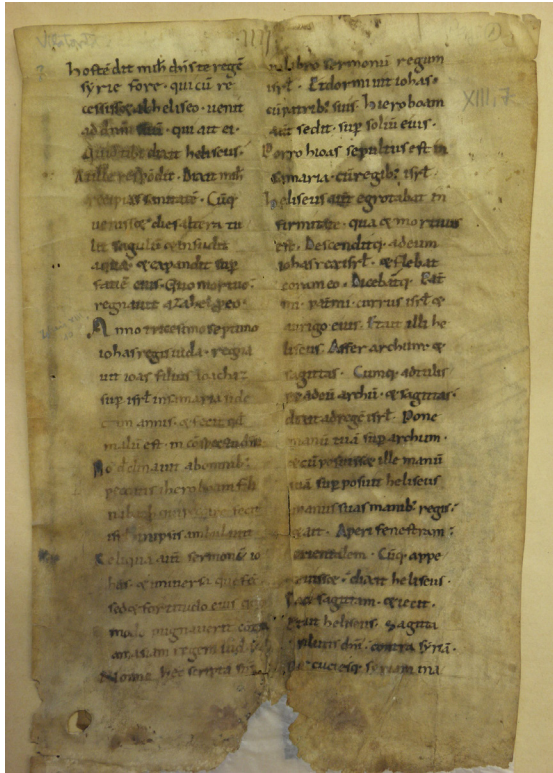 hostēdit mih dn̄s te regē
syrie fore · qui cū re
cessisset ab heliseo · uenit
ad dnm̄ suū · qui ait ei ·
Quid tibi dixit heliseus ·
At ille respōdit · Dixit mihi
recipies sanitatē · Cūq;
uenisset dies altera tu
lit sagulū & infudit
aquā · & expandit sup̄
faciē eius · Quo mortuo ·
regnauit azahel p̄ eo ·
Anno tricesimo septimo
iohas regis iuda · regna
uit ioas filius ioachaz
sup̄ isrl̄ in samaria sede
cim annis · & fecit qd̄
malū est · in cōspectu dn̄i
No declinauit ab omnib;
peccatis iheroboam filii
nabath qui peccare fecit
isrl̄ in ipsis ambulauit
Reliqua aūt sermonū io
has · & uniuersa que fecit
sed & fortitudo eius quo
modo pugnauerit cont̄
amasiam regem iuda
Nonne hec scripta sunt
in libro sermonū regum
isrl̄ · Et dormiuit iohas ·
cū patrib; suis · hieroboam
aūt sedit · sup̄ soliū eius ·
Porro hioas sepultus est in
samaria · cū regib; isrl̄
heliseus aūt egrotabat in
firmitate · qua & mortuus
est · Descenditq; ad eum
iohas rex isrl̄ · & flebat
coram eo · Dicebatq; Pat̄
mi · pat̄ mi · currus isrl̄ &
auriga eius · Et ait illi he
liseus · Affer archum &
sagittas · Cumq; adtulis
set ad eū archū · & sagittas ·
dixit ad regē isrl̄ · Pone
manū tuā sup̄ archum ·
& cū posuisset ille manū
suā sup̄ posuit heliseus
manus suas manib; regis ·
& ait · Aperi fenestram ·
orientalem · Cūq; appe
ruisset · dixit heliseus ·
Iace sagittam · & iecit ·
Et ait heliseus · Sagitta
salutis dn̄i · contra syriā ·
Percuciesq; syriam
XIII,7